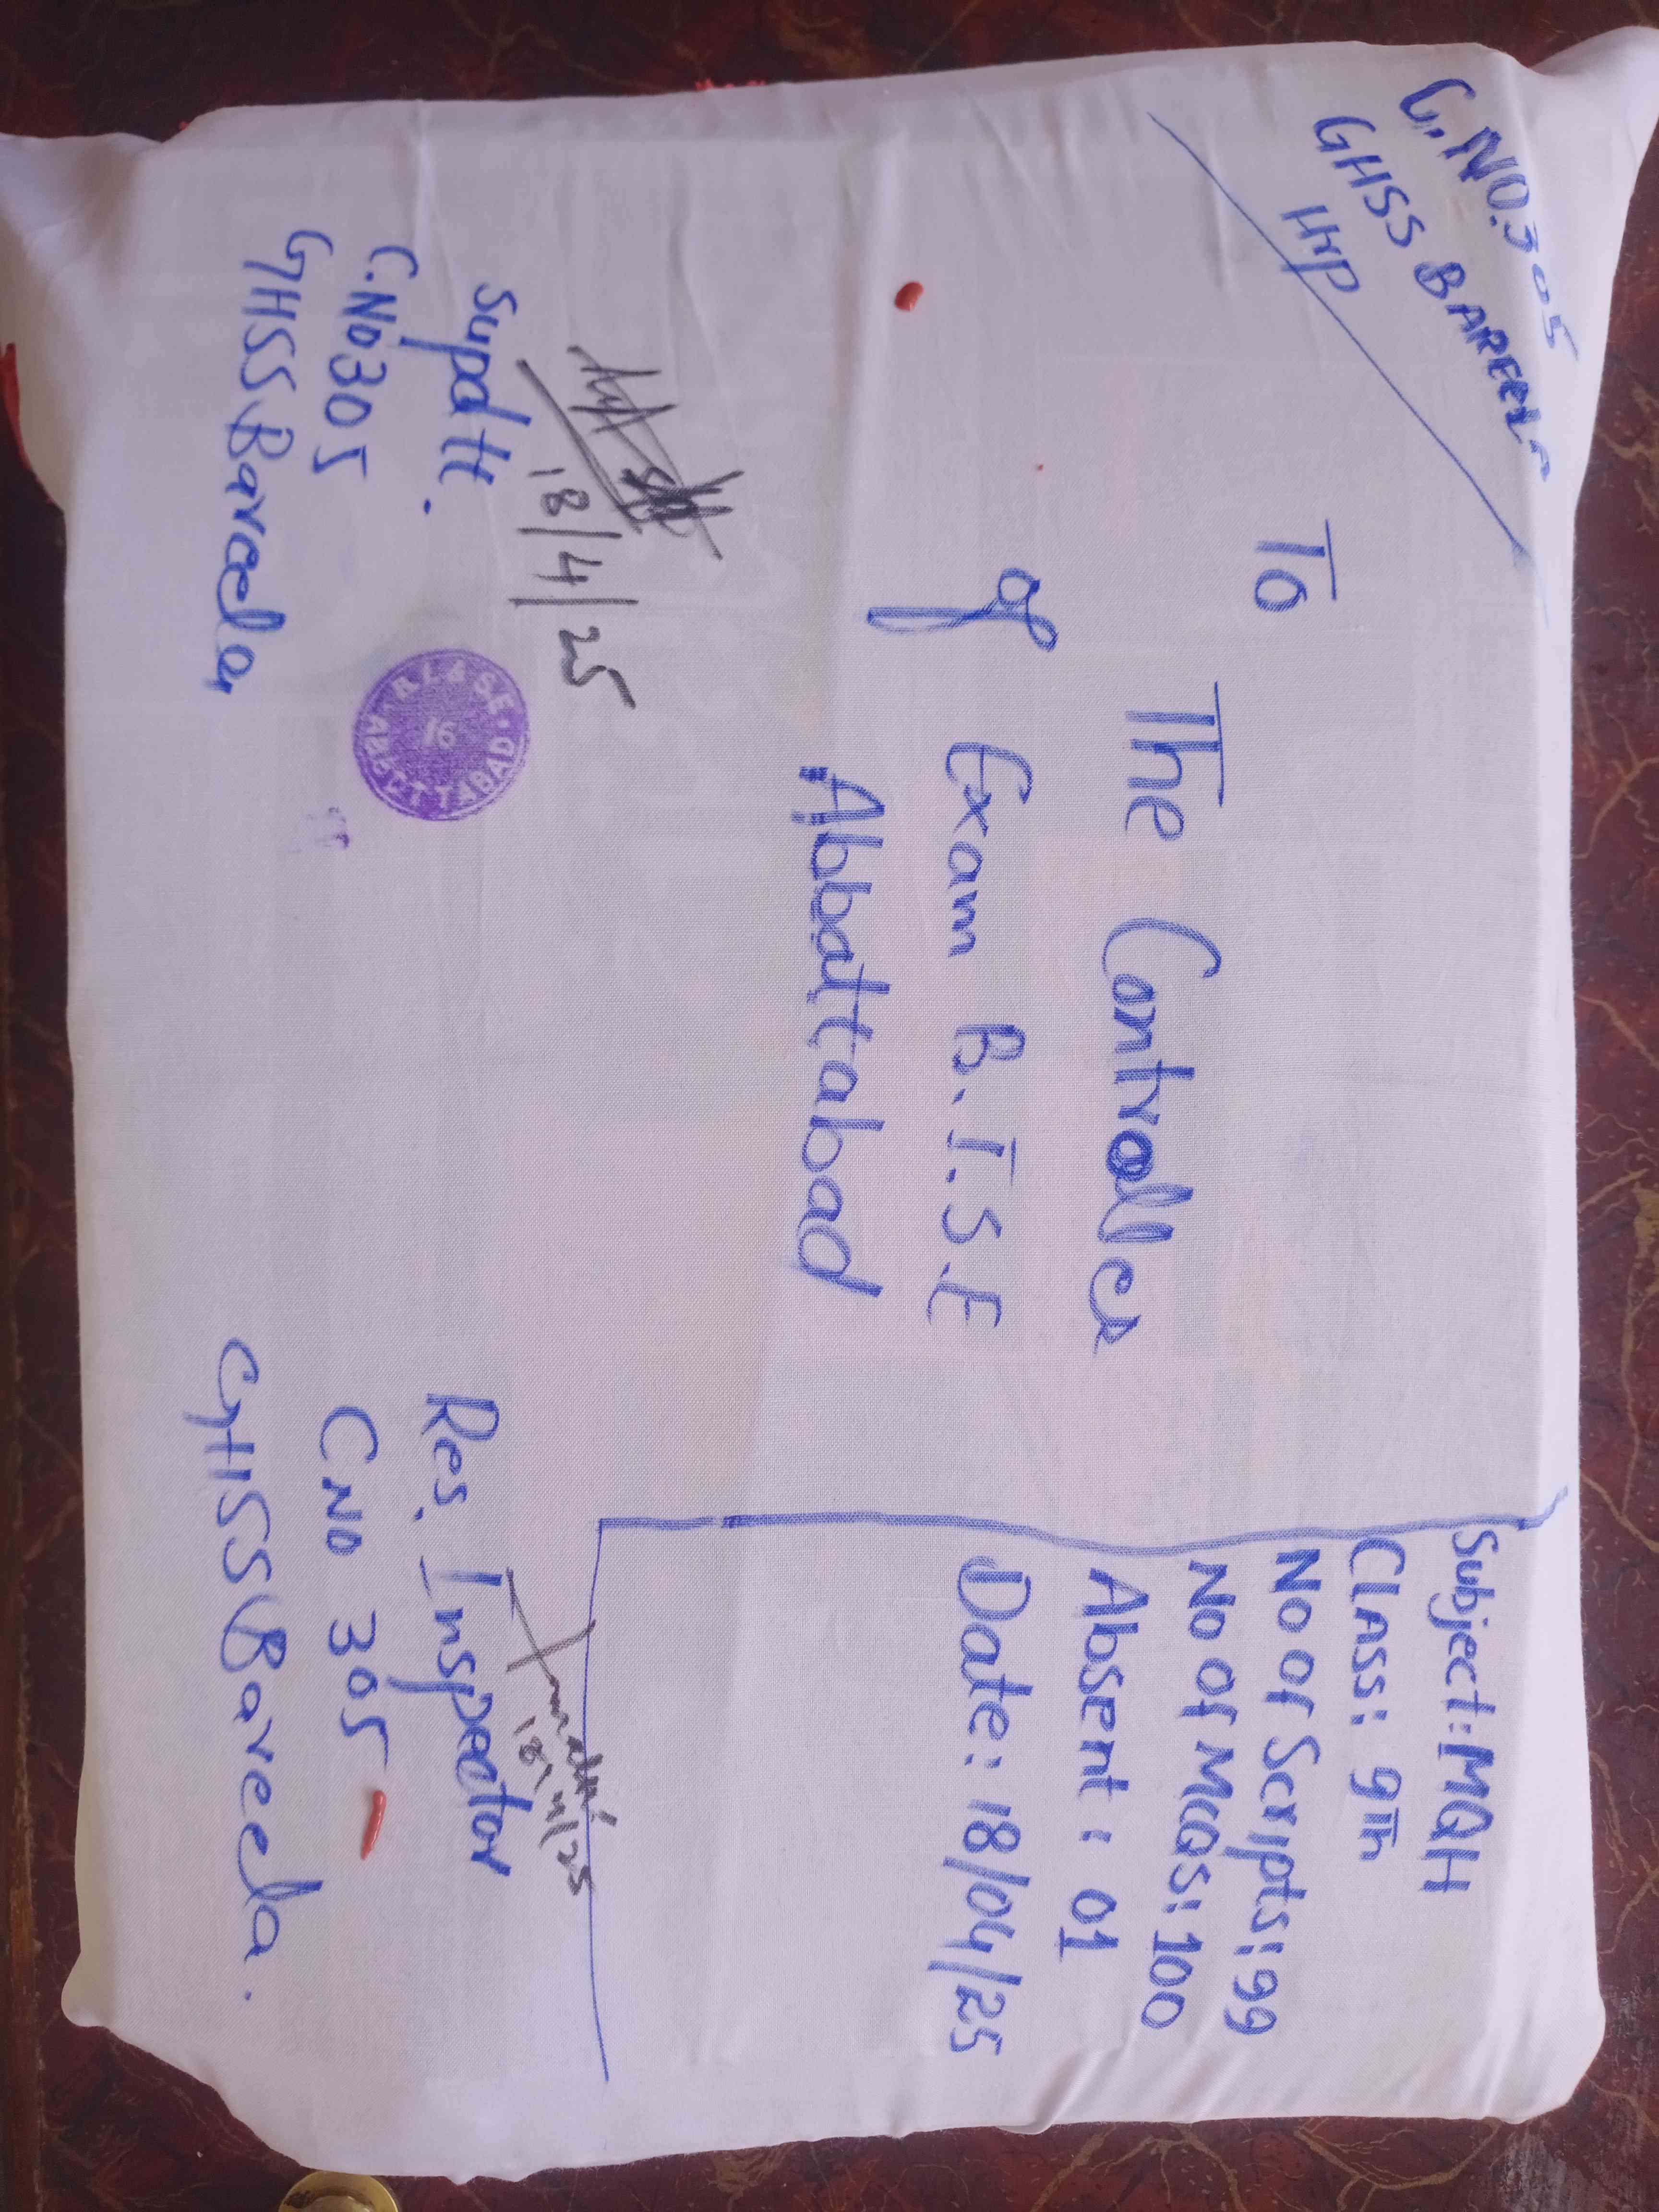 C.NO.305
GHSS BAREELA
HrP
To
The Controller
of Exam B.I.S.E
Abbattabad
Subject: MQH
Class: 9Th
No of Scripts: 99
No of MCQs: 100
Absent: 01
Date: 18/04/25
18/4/25
Supdtt.
C.No 305
GHSS Bareela
B.I. & S.E.
16
ABBOTTABAD
18/4/25
Res. Inspector
C NO 305
GHSS Bareela.